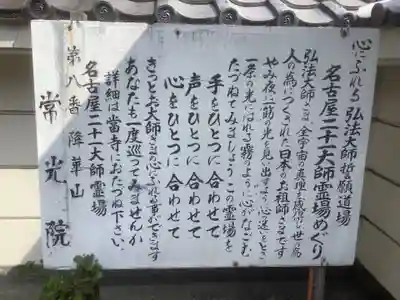 心にふれる 弘法大師誓願道場
名古屋二十一大師霊場めぐり
弘法大師さまは、全宇宙の真理を感得し世の為
人の為につくされた日本のお祖師さまです
やみ夜に一筋の光を見い出すよう心の迷いをとき
一条の光にはれる霧のように心がなごむ
たづねてみましょうこの霊場を
手をひとつに合わせて
声をひとつに合わせて
心をひとつに合わせて
きっとお大師さまの心にふれる事ができます
あなたも一度巡ってみませんか
詳細は當寺におたづね下さい。
名古屋二十一大師霊場
第八番 降華山
常光院